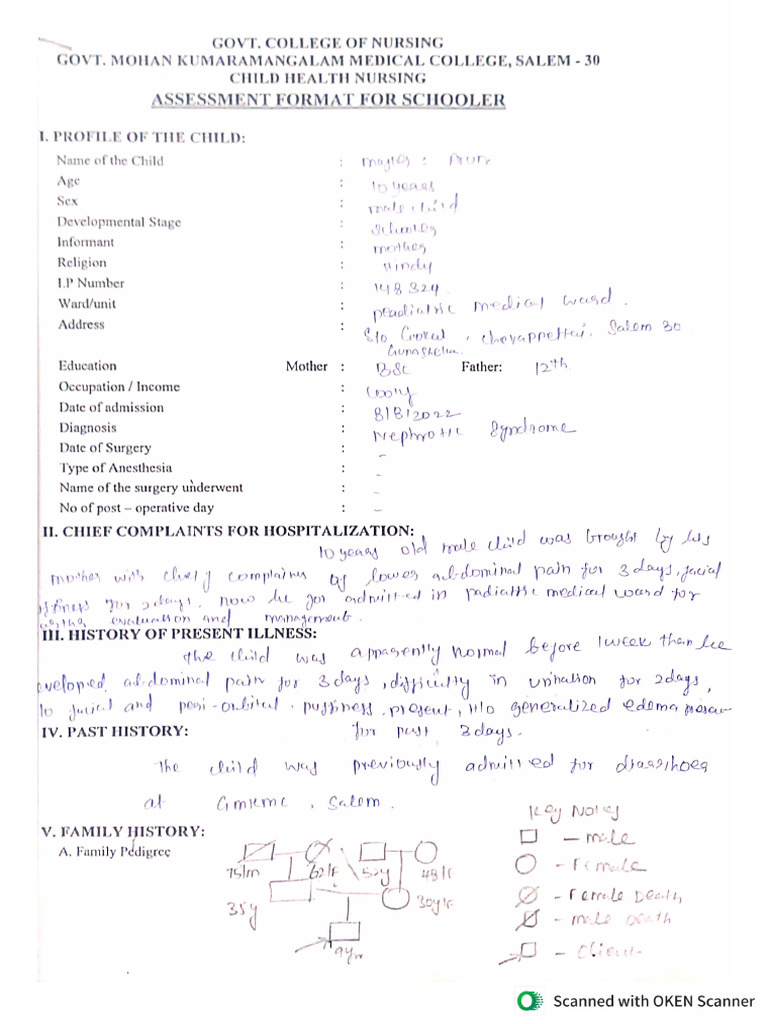 GOVT. COLLEGE OF NURSING
GOVT. MOHAN KUMARAMANGALAM MEDICAL COLLEGE, SALEM - 30
CHILD HEALTH NURSING
ASSESSMENT FORMAT FOR SCHOOLER
I. PROFILE OF THE CHILD:
Name of the Child :
Age : 10 years
Sex : male child
Developmental Stage : Schooler
Informant : mother
Religion : Hindy
I.P Number : 148324
Ward/unit : peadiatric medical ward.
Address : S/o , Salem 30
Education Mother : BSc Father: 12th
Occupation / Income :
Date of admission : 8/8/2022
Diagnosis : Nephrotic Syndrome
Date of Surgery : -
Type of Anesthesia : -
Name of the surgery underwent : -
No of post – operative day : -
II. CHIEF COMPLAINTS FOR HOSPITALIZATION:
10 years old male child was brought by his
mother with complains of lower abdominal pain for 3 days, facial
for 2 days. now he got admitted in padiatric medical ward for
evaluation and management.
III. HISTORY OF PRESENT ILLNESS:
The child was apparently normal before 1 week than he
eveloped abdominal pain for 3 days, difficulty in urination for 2 days,
facial and peri-orbital puffiness present, H/o generalized edema
for past 3 days.
IV. PAST HISTORY:
The child was previously admitted for diarrhoea
at GMKMC, Salem.
V. FAMILY HISTORY:
A. Family Pedigree
Key Notes
- male
- Female
- Female Death
- male Death
- Client
75/m 62/F 52y 48/F
35y 30y/F
9yr
Scanned with OKEN Scanner